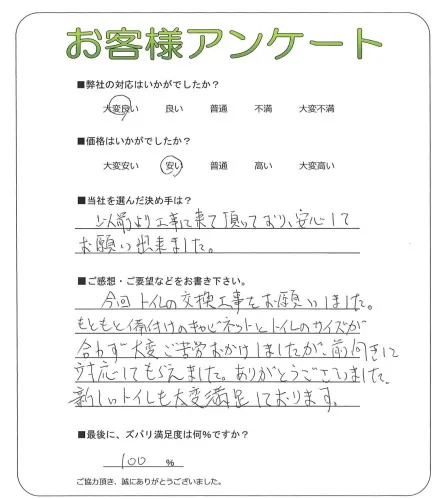 お客様アンケート
■弊社の対応はいかがでしたか?
大変良い 良い 普通 不満 大変不満
■価格はいかがでしたか?
大変安い 安い 普通 高い 大変高い
■当社を選んだ決め手は?
以前より工事に来て頂いており、安心して
お願い出来ました。
■ご感想・ご要望などをお書き下さい。
今回トイレの交換工事をお願いしました。
もともと備付けのキャビネットとトイレのサイズが
合わず大変ご苦労おかけしましたが、前向きに
対応してもらえました。ありがとうございました。
新しいトイレも大変満足しております。
■最後に、ズバリ満足度は何%ですか?
100 %
ご協力頂き、誠にありがとうございました。